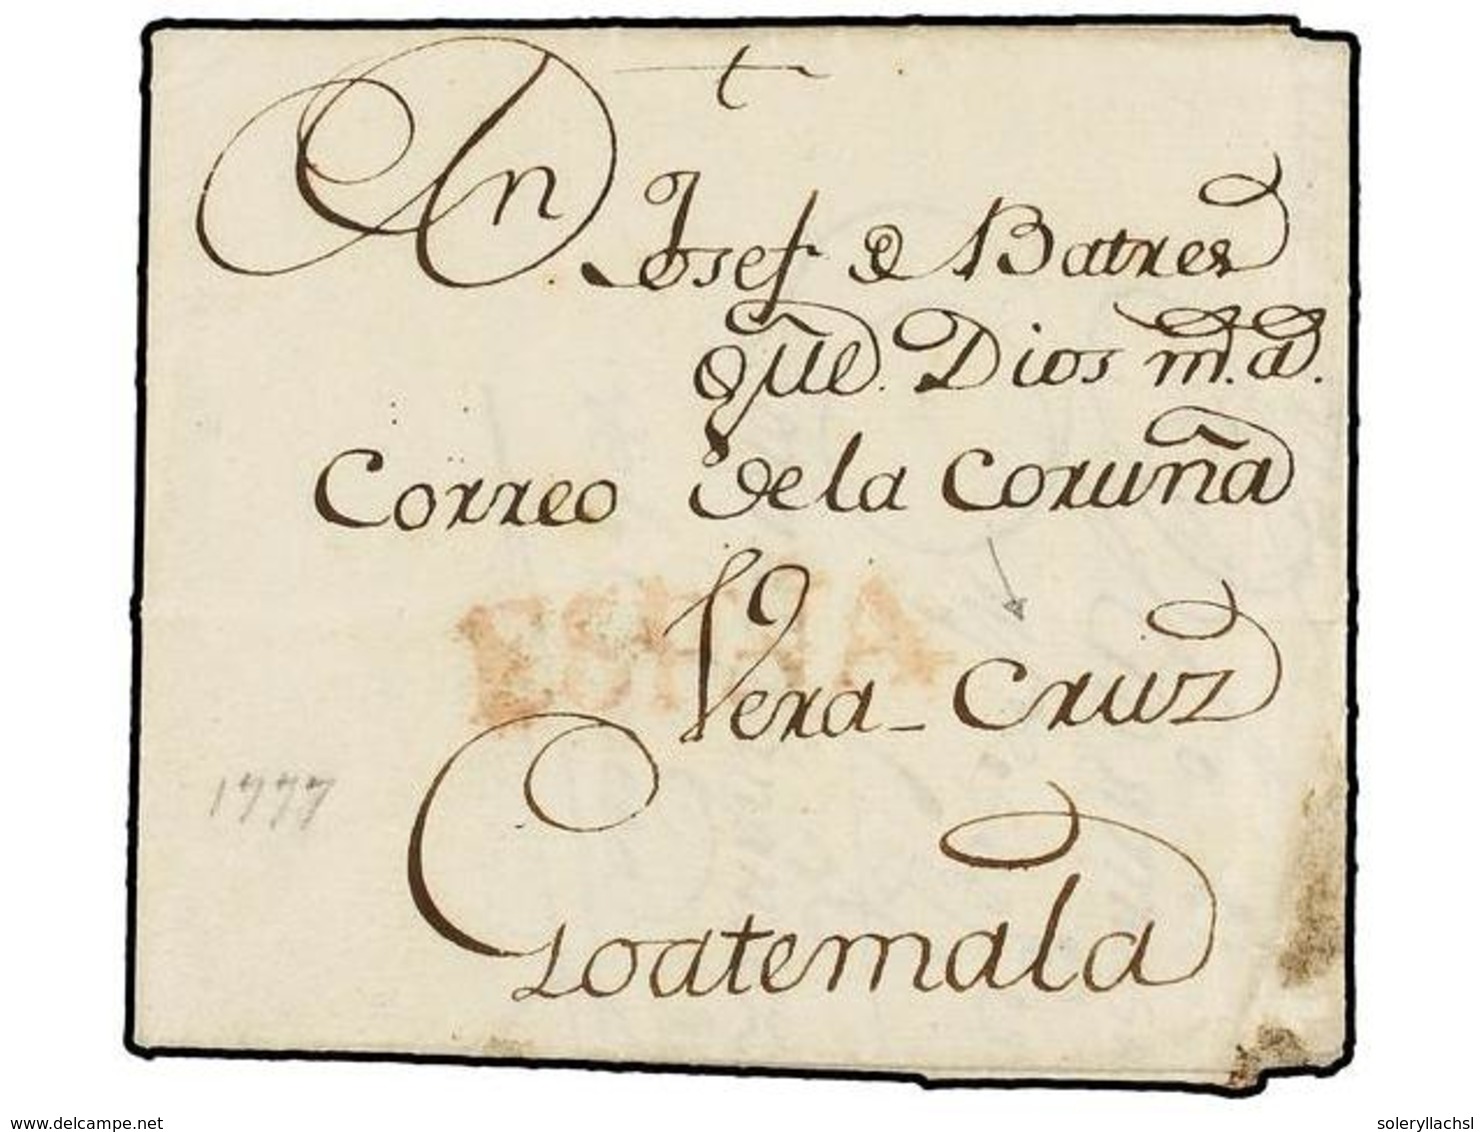 Dn Josef de Batres
que. Dios m.s a.s
Correo de la Coruña
ESPAÑA
Vera-Cruz
1777
Goatemala
www.delcampe.net
soleryllachsl